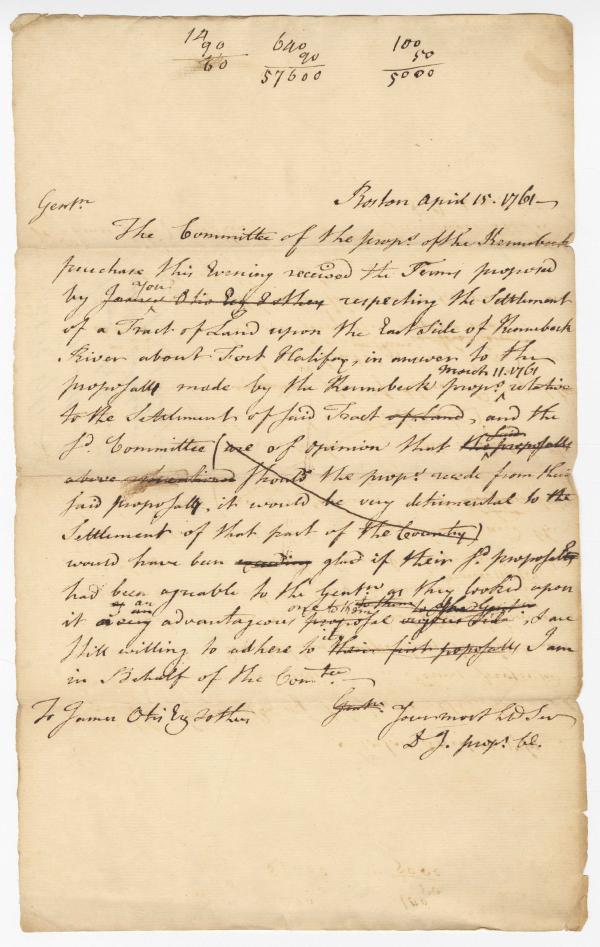 14
90
60
640
90
57600
100
50
5000
Boston April 15. 1761
Gentn
The Committee of the props. of the Kennebeck
purchase this Evening received the Terms proposed
you
by James Otis Esq & others respecting the Settlement
of a Tract of Land upon the East Side of Kennebeck
River about Fort Halifax, in answer to the
March 11. 1761
proposalls made by the Kennebeck props. relative
to the Settlement of said Tract of Land, and the
sd. Committee (are of opinion that the proposalls
above mentioned should the props. recede from their
said proposalls, it would be very detrimental to the
Settlement of that part of the Country)
would have been glad if their sd. proposalls
had been agreable to the Gentn as they looked upon
as an one to them
it a very advantageous proposal & are
it
still willing to adhere to their first proposalls I am
in Behalf of the Comtee.
To James Otis Esq & others
Gentn. Your most h Ser
D J. props. Cl.